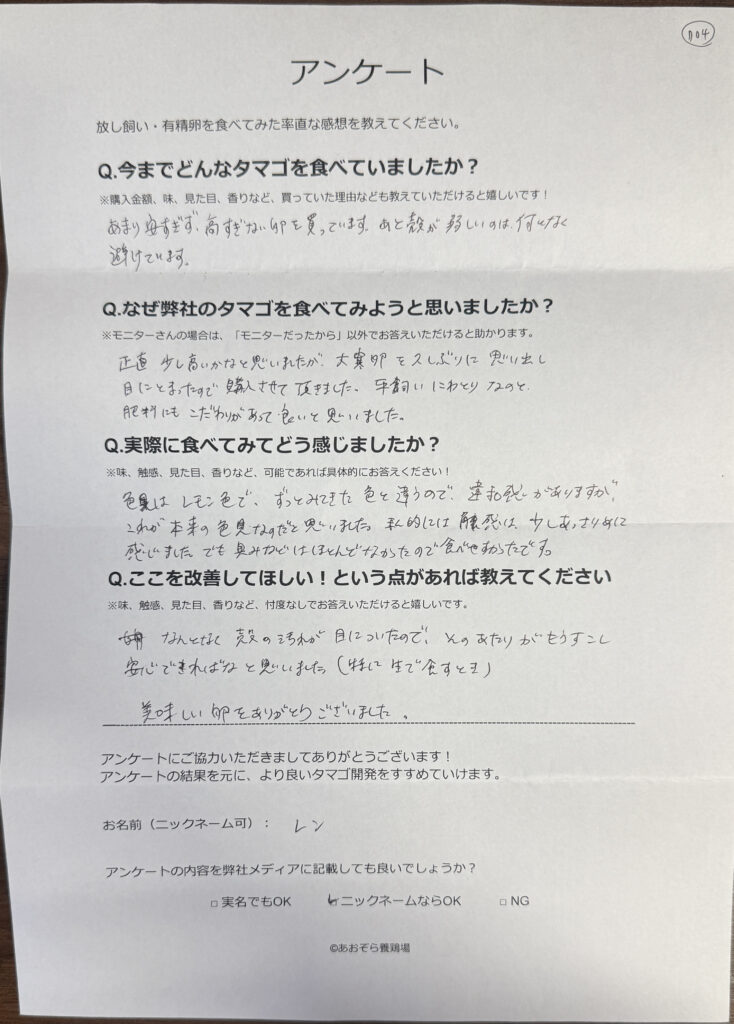 704
アンケート
放し飼い・有精卵を食べてみた率直な感想を教えてください。
Q.今までどんなタマゴを食べていましたか？
※購入金額、味、見た目、香りなど、買っていた理由なども教えていただけると嬉しいです！
あまり安すぎず、高すぎない卵を買っています。あと殻が弱しいのは、何となく
避けています。
Q.なぜ弊社のタマゴを食べてみようと思いましたか？
※モニターさんの場合は、「モニターだったから」以外でお答えいただけると助かります。
正直 少し高いかなと思いましたが、大寒卵を久しぶりに思い出し
目にとまったので購入させて頂きました。平飼いにわとりなのと、
肥料にもこだわりがあって良いと思いました。
Q.実際に食べてみてどう感じましたか？
※味、触感、見た目、香りなど、可能であれば具体的にお答えください！
色見はレモン色で、ずっとみてきた色と違うので、違和感がありますが、
これが本来の色見なのだと思いました。私的には触感は、少しあっさりめに
感じました。でも臭みなどはほとんどなかったので食べやすかったです。
Q.ここを改善してほしい！という点があれば教えてください
※味、触感、見た目、香りなど、忖度なしでお答えいただけると嬉しいです。
なんとなく 殻の汚れが目についたので、そのあたりがもうすこし
安心できればなと思いました（特に生で食すとき）
美味しい卵をありがとうございました。
アンケートにご協力いただきましてありがとうございます！
アンケートの結果を元に、より良いタマゴ開発をすすめていけます。
お名前（ニックネーム可）： レン
アンケートの内容を弊社メディアに記載しても良いでしょうか？
□ 実名でもOK ☑ ニックネームならOK □ NG
©あおぞら養鶏場